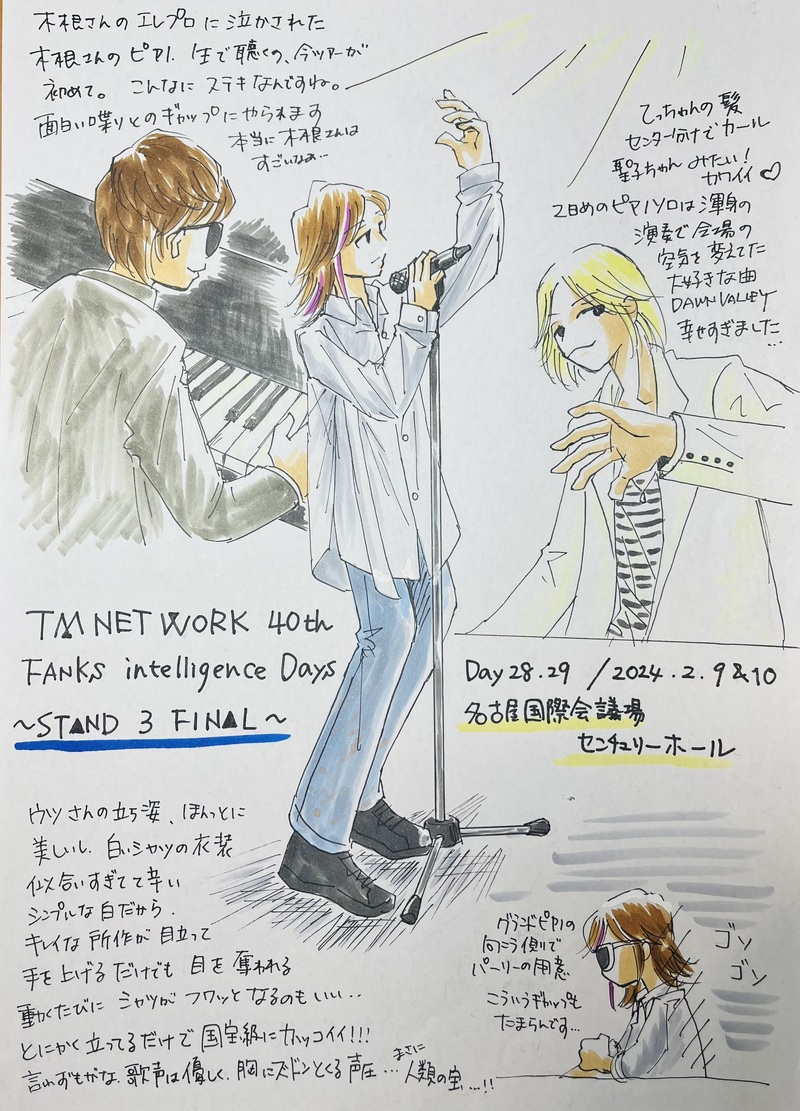 木根さんのエレプロに泣かされた
木根さんのピアノ、生で聴くの、今ツアーが
初めて。こんなにステキなんですね。
面白い喋りとのギャップにやられます
本当に木根さんは
すごいなぁ…
てっちゃんの髪
センター分けでカール
聖子ちゃんみたい!
カワイイ♡
2日めのピアノソロは渾身の
演奏で会場の
空気を変えてた
大好きな曲
DAWN VALLEY
幸せすぎました…
TM NETWORK 40th
FANKS intelligence Days
~STAND 3 FINAL~
Day 28.29 / 2024.2.9&10
名古屋国際会議場
センチュリーホール
ウツさんの立ち姿、ほんっとに
美しいし、白いシャツの衣装
似合いすぎてて辛い
シンプルな白だから、
キレイな所作が目立って
手を上げるだけでも目を奪われる
動くたびにシャツがフワッとなるのもいい‥
とにかく立ってるだけで国宝級にカッコイイ!!!
言わずもがな、歌声は優しく、胸にズドンとくる声圧…まさに人類の宝…!!
グランドピアノの
向こう側で
パーリーの用意
こういうギャップも
たまらんです…
ゴソ
ゴソ